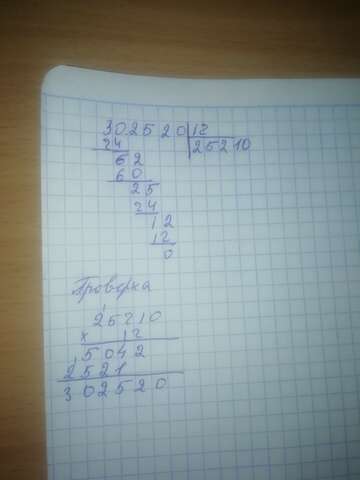 302520|12
24 25210
62
60
25
24
12
12
0
Проверка
1
25210
x 12
5042
2521
302520